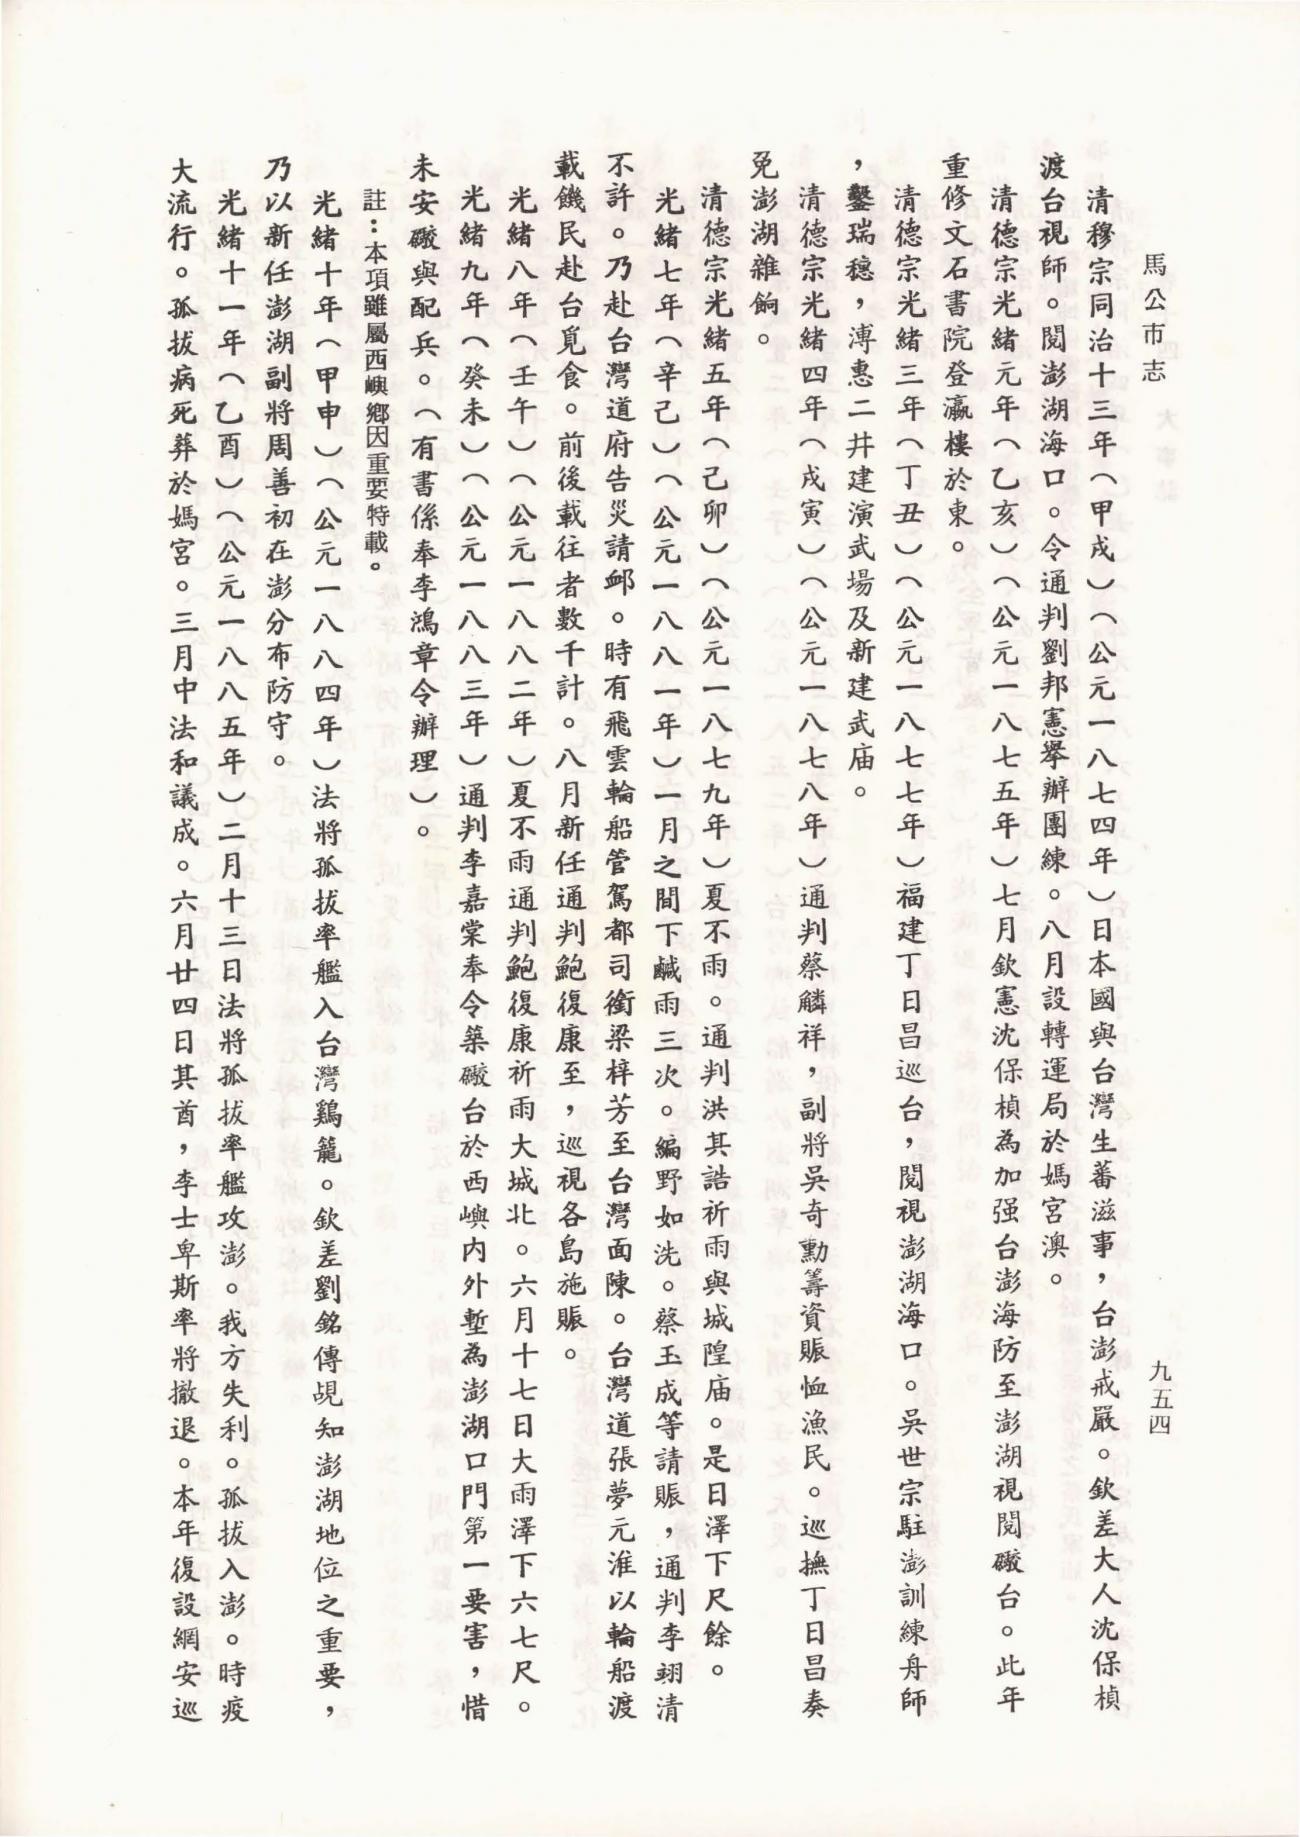 馬公市志
九五四
清穆宗同治十三年（甲戌）（公元一八七四年）日本國與台灣生蕃滋事，台澎戒嚴。欽差大人沈保楨
渡台視師。閱澎湖海口。令通判劉邦憲舉辦團練。八月設轉運局於媽宮澳。
清德宗光緒元年（乙亥）（公元一八七五年）七月欽憲沈保楨為加强台澎海防至澎湖視閱礮台。此年
重修文石書院登瀛樓於東。
清德宗光緒三年（丁丑）（公元一八七七年）福建丁日昌巡台，閱視澎湖海口。吳世宗駐澎訓練舟師
，鑿瑞穗，溥惠二井建演武場及新建武庙。
清德宗光緒四年（戍寅）（公元一八七八年）通判蔡麟祥，副將吳奇勳籌資賑恤漁民。巡撫丁日昌奏
免澎湖雜餉。
清德宗光緒五年（己卯）（公元一八七九年）夏不雨。通判洪其誥祈雨與城隍庙。是日澤下尺餘。
光緒七年（辛己）（公元一八八一年）一月之間下鹹雨三次。編野如洗。蔡玉成等請賑，通判李翊清
不許。乃赴台灣道府告災請卹。時有飛雲輪船管駕都司銜梁梓芳至台灣面陳。台灣道張夢元淮以輪船渡
載饑民赴台覓食。前後載往者數千計。八月新任通判鮑復康至，巡視各島施賑。
光緒八年（壬午）（公元一八八二年）夏不雨通判鮑復康祈雨大城北。六月十七日大雨澤下六七尺。
光緒九年（癸未）（公元一八八三年）通判李嘉棠奉令築礮台於西嶼内外塹為澎湖口門第一要害，惜
未安礮與配兵。（有書係奉李鴻章令辦理）。
註：本項雖屬西嶼鄉因重要特載。
光緒十年（甲申）（公元一八八四年）法將孤拔率艦入台灣鷄籠。欽差劉銘傳覘知澎湖地位之重要，
乃以新任澎湖副將周善初在澎分布防守。
光緒十一年（乙酉）（公元一八八五年）二月十三日法將孤拔率艦攻澎。我方失利。孤拔入澎。時疫
大流行。孤拔病死葬於媽宮。三月中法和議成。六月廿四日其酋，李士卑斯率將撤退。本年復設網安巡